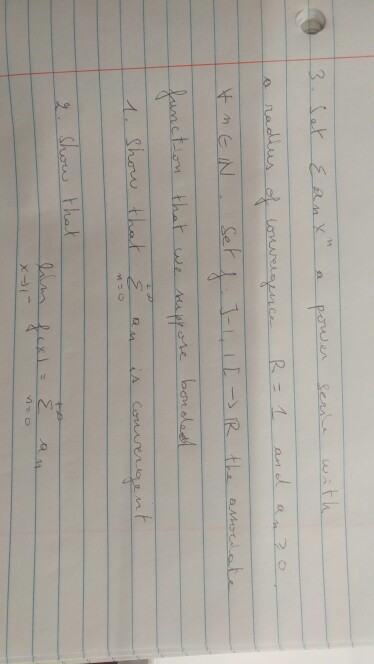 3. Set Σ aₙxⁿ a power serie with
a radius of convergence R = 1 and aₙ ≥ 0,
∀ n ∈ ℕ. Set f: ]-1,1[ → ℝ the associate
function that we suppose bonded
1. Show that Σ_{n=0}^{+∞} aₙ is convergent
2. Show that
lim_{x→1⁻} f(x) = Σ_{n=0}^{+∞} aₙ